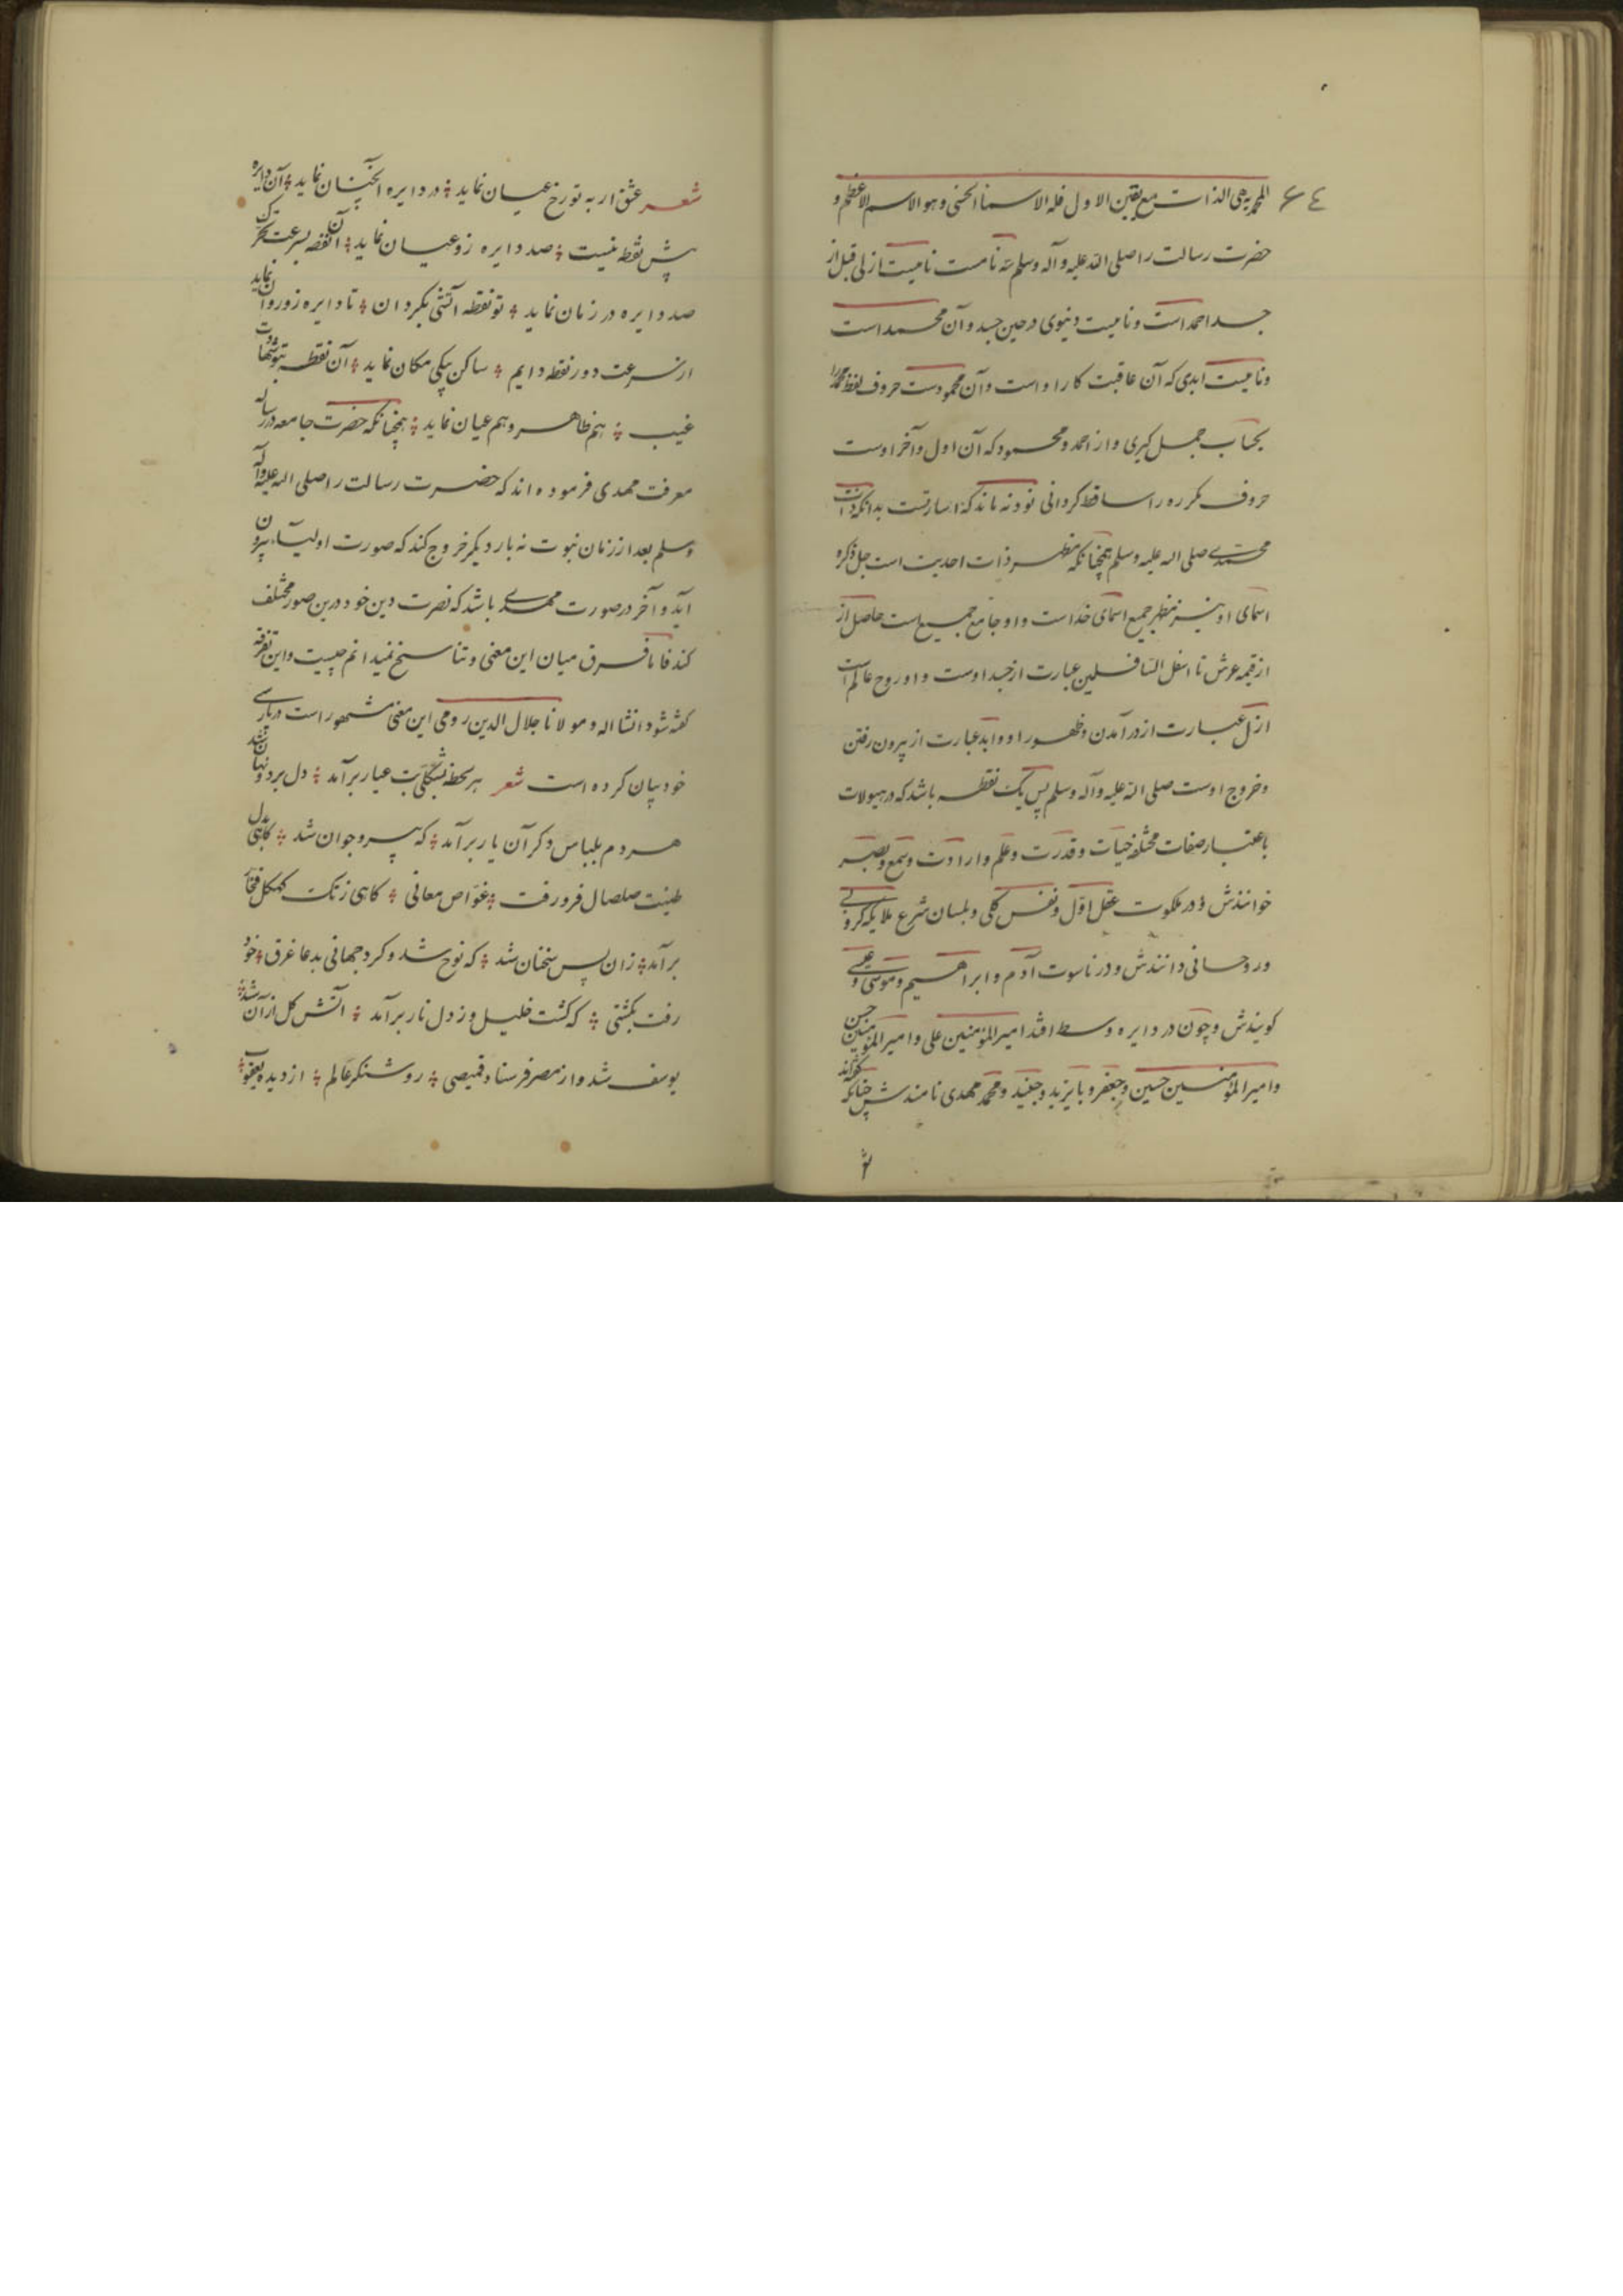 المحمدیه هی الذات مع یقین الاول فله الاسماء الحسنی وهو الاسم الاعظم و
حضرت رسالت را صلی الله علیه وآله وسلم سه نامست نامیست ازلی قبل از
جسد احمد است ونامیست دنیوی در حین جسد وآن محمد است
ونامیست ابدی که آن عاقبت کار او است وآن محمودست حروف لفظ محمد را
بحساب جمل کیری واز احمد ومحمود که آن اول وآخر اوست
حروف مکرره را ساقط کردانی نود ونه ماند که اشارتست بدانکه ذات
محمدی صلی اله علیه وسلم همچنانکه مظهر ذات احدیت است جل ذکره
اسمای او نیز مظهر جمیع اسمای خداست واو جامع جمیع است حاصل از
از قیمه عرش تا اسفل السافلین عبارت از جسد اوست واو روح عالم است
ازل عبارت از درآمدن وظهور او وابد عبارت از بیرون رفتن
وخروج اوست صلی الله علیه وآله وسلم پس یک نقطه باشد که در هیولات
باعتبار صفات مختلفه حیات وقدرت وعلم وارادت وسمع وبصر
خوانندش ودر ملکوت عقل اول ونفس کلی وبلسان شرع ملایکه کروبی
وروحانی دانندش ودر ناسوت آدم وابراهیم وموسی وعیسی
کویندش وچون در دایره وسط افتد امیر المؤمنین علی وامیر المؤمنین حسن
وامیر المؤمنین حسین وجعفر وبایزید وجنید ومحمد مهدی نامندش چنانکه گفته‌اند
شعر عشق ار به تو رخ عیان نماید در دایره آنچنان نماید آن دایره
پیش نقطه نیست صد دایره زو عیان نماید آن نقطه بسرعت تحرک
صد دایره در زمان نماید تو نقطه آتشی بکردان تا دایره زو روان نماید
از سرعت دور نقطه دایم ساکن بیکی مکان نماید آن نقطه بتو شهادت
غیب هم ظاهر وهم عیان نماید همچنانکه حضرت جامعه در رساله
معرفت محمدی فرموده اند که حضرت رسالت را صلی اله علیه وآله
وسلم بعد از زمان نبوت نه بار دیکر خروج کند که صورت اولیا بیرون
آید وآخر در صورت محمدی باشد که نصرت دین خود درین صور مختلف
کند فاما فرق میان این معنی وتناسخ نمیدانم چیست واین تفرقه
کفته شود انشا اله ومولانا جلال الدین رومی این معنی مشهور است در پارسی
خود بیان کرده است شعر هر لحظه بشکلی بت عیار برآمد دل برد ونهان شد
هر دم بلباس دکر آن یار برآمد که پیر وجوان شد کاهی بدل
طینت صلصال فرو رفت غواص معانی کاهی ز تک کهکل فخار
برآمد زان پس سخنان شد که نوح شد وکرد جهانی بدعا غرق خود
رفت بکشتی که کشت خلیل وز دل نار برآمد آتش کل از آن شد
یوسف شد واز مصر فرستاد قمیصی روشنکر عالم از دیده یعقوب